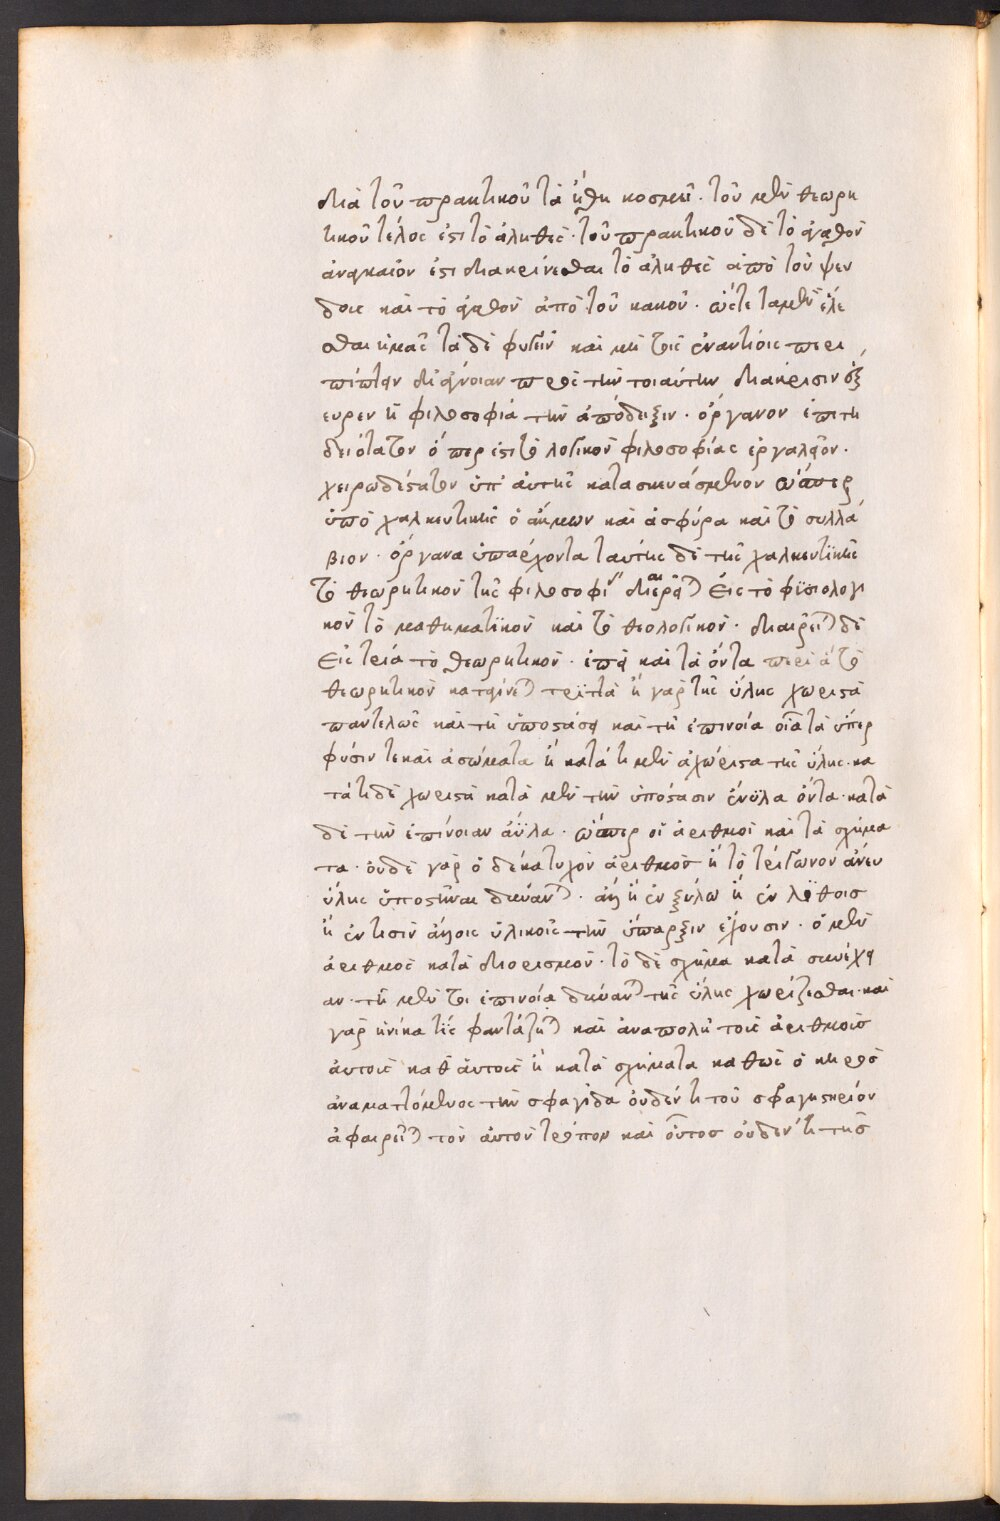 διὰ τοῦ πρακτικοῦ τὰ ἤθη κοσμεῖ· τοῦ μὲν θεωρη
τικοῦ τέλος ἐστὶ τὸ ἀληθές· τοῦ πρακτικοῦ δὲ τὸ ἀγαθόν
ἀναγκαῖον ἐστὶ διακρίνεσθαι τὸ ἀληθὲς ἀπὸ τοῦ ψευ
δοῦς καὶ τὸ ἀγαθὸν ἀπὸ τοῦ κακοῦ· ὥστε τὰ μὲν ἑλέ
σθαι ἡμᾶς τὰ δὲ φυγεῖν καὶ μὴ τοῖς ἐναντίοις περι
πίπτειν δι' ἄγνοιαν πρὸς τὴν τοιαύτην διάκρισιν ἐξ
εῦρεν ἡ φιλοσοφία τὴν ἀπόδειξιν· ὄργανον ἐπιτη
δειότατον ὅπερ ἐστὶ τὸ λογικὸν φιλοσοφίας ἐργαλεῖον·
χειρωδέστατον ὑπ' αὐτῆς κατασκευάσμενον ὥσπερ
ὑπὸ χαλκευτικῆς ὁ ἄκμων καὶ ἁ σφύρα καὶ τὸ συλλά
βιον· ὄργανα ὑπάρχοντα ταύτης δὲ τῆς χαλκευτικῆς
τὸ θεωρητικὸν τῆς φιλοσοφίας διαιρεῖται εἰς τὸ φϋσιολογι
κὸν τὸ μαθηματϊκὸν καὶ τὸ θεολογικόν· διαιρεῖται δὲ
εἰς τρία τὸ θεωρητικόν· ἐπεὶ καὶ τὰ ὄντα περὶ ἃ τὸ
θεωρητικὸν καταγίνεται τρϊττὰ ἢ γὰρ τῆς ὕλης χωριστὰ
παντελῶς καὶ τῇ ὑποστάσει καὶ τῇ ἐπινοία οἷα τὰ ὑπὲρ
φύσιν τε καὶ ἀσώματα ἢ κατά τι μὲν ἀχώριστα τῆς ὕλης· κα
τά τι δὲ χωριστὰ κατὰ μὲν τὴν ὑπόστασιν ἔνϋλα ὄντα· κατὰ
δὲ τὴν ἐπίνοιαν ἄϋλα· ὥσπερ οἱ ἀριθμοὶ καὶ τὰ σχήμα
τα· οὐδὲ γὰρ ὁ δέκα τυχὸν ἀριθμὸς ἢ τὸ τρίγωνον ἄνευ
ὕλης ὑποστῆναι δύναται· ἀλλ' ἢ ἐν ξύλω ἢ ἐν λϊθοισ
ἢ ἐν τισὶν ἄλλοις ὑλικοῖς τὴν ὕπαρξιν ἔχουσιν· ὁ μὲν
ἀριθμὸς κατὰ διορισμόν· τὸ δὲ σχῆμα κατὰ συνέχει
αν· τῇ μέν τοι ἐπινοία δύναται τῆς ὕλης χωρίζεσθαι· καὶ
γὰρ ἡνίκα τίς φαντάζηται καὶ ἀναπολῇ τοὺς ἀριθμοὺσ
αὐτοὺς καθ' αὑτοὺς ἢ κατὰ σχήματα καθὼς ὁ κηρὸσ
ἀναματτόμενος τὴν σφραγῖδα οὐδέν τι τοῦ σφραγιστηρίου
ἀφαιρεῖται τὸν αὐτὸν τρόπον καὶ οὗτοσ οὐδέν τι τῆσ